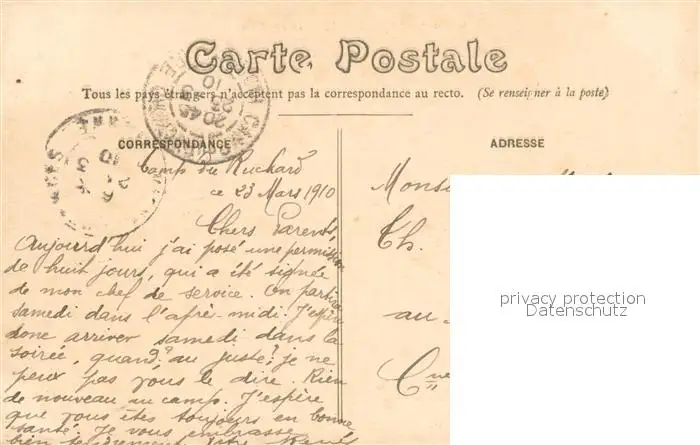 Carte Postale
Tous les pays étrangers n'acceptent pas la correspondance au recto. (Se renseigner à la poste)
CORRESPONDANCE
ADRESSE
Camp du Ruchard
ce 23 Mars 1910
Chers Parents,
Aujourd'hui j'ai posé une permission
de huit jours, qui a été signée
de mon chef de service. On partira
samedi dans l'après-midi. J'espère
donc arriver samedi dans la
soirée, quand? au juste? je ne
peux pas vous le dire. Rien
de nouveau au camp. J'espère
que vous êtes toujours en bonne
santé. Je vous embrasse
bien tendrement Votre René
Monsi
Th.
au
privacy protection
Datenschutz